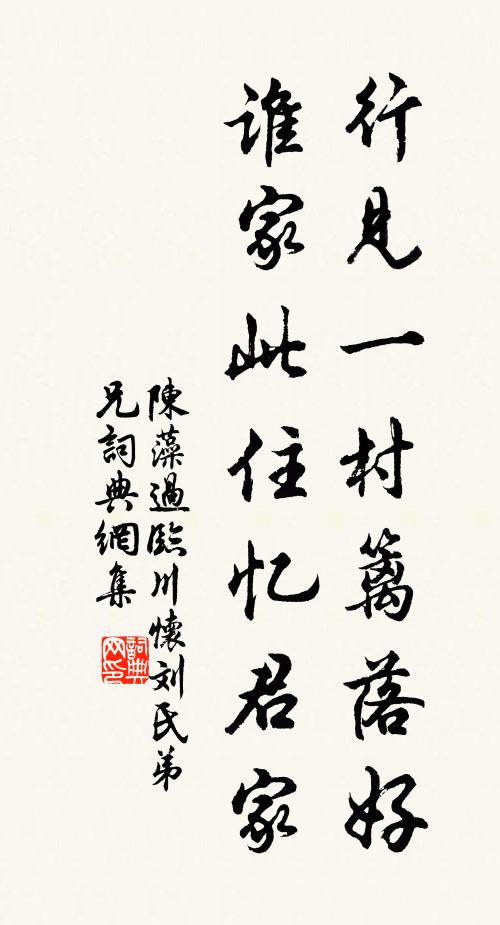 行見一村籬落好
誰家此住忆君家
陳藻過臨川懷刘氏弟
兄詞典網集
詞典网印